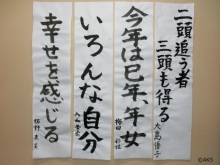 二頭追う者
三頭も得る
大島優子
今年は巳年、年女
梅田彩佳
いろんな自分
幸せを感じる
©AKS